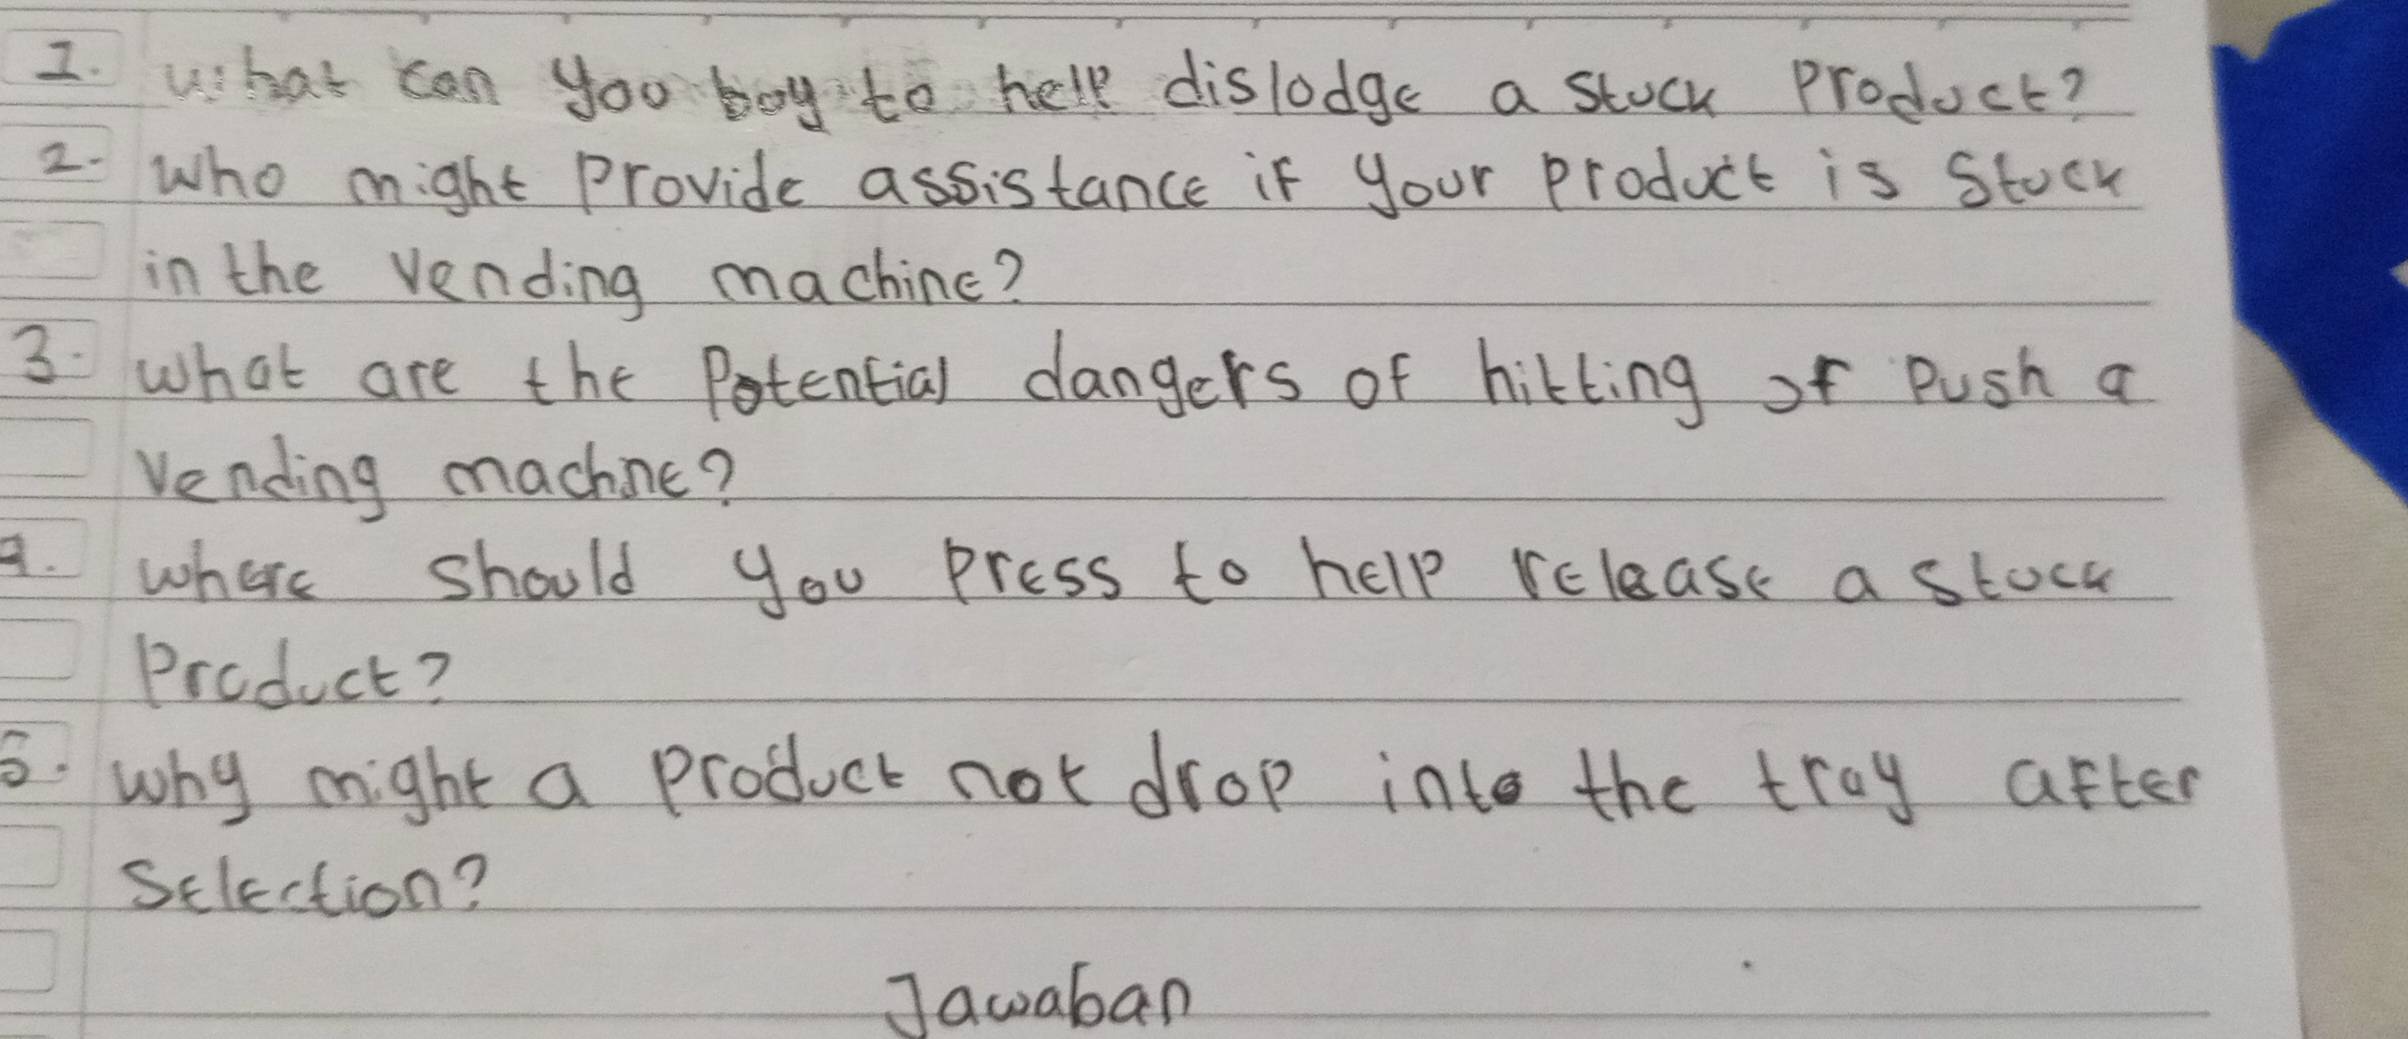 1. what can you boy to help dislodge a stuck product?
2. Who might provide assistance if your product is stuck
in the vending machine?
3. what are the potential dangers of hitting of push a
vending machine?
4. where should you press to help release a stuck
Product?
5. why might a product not drop into the tray after
selection?
Jawaban